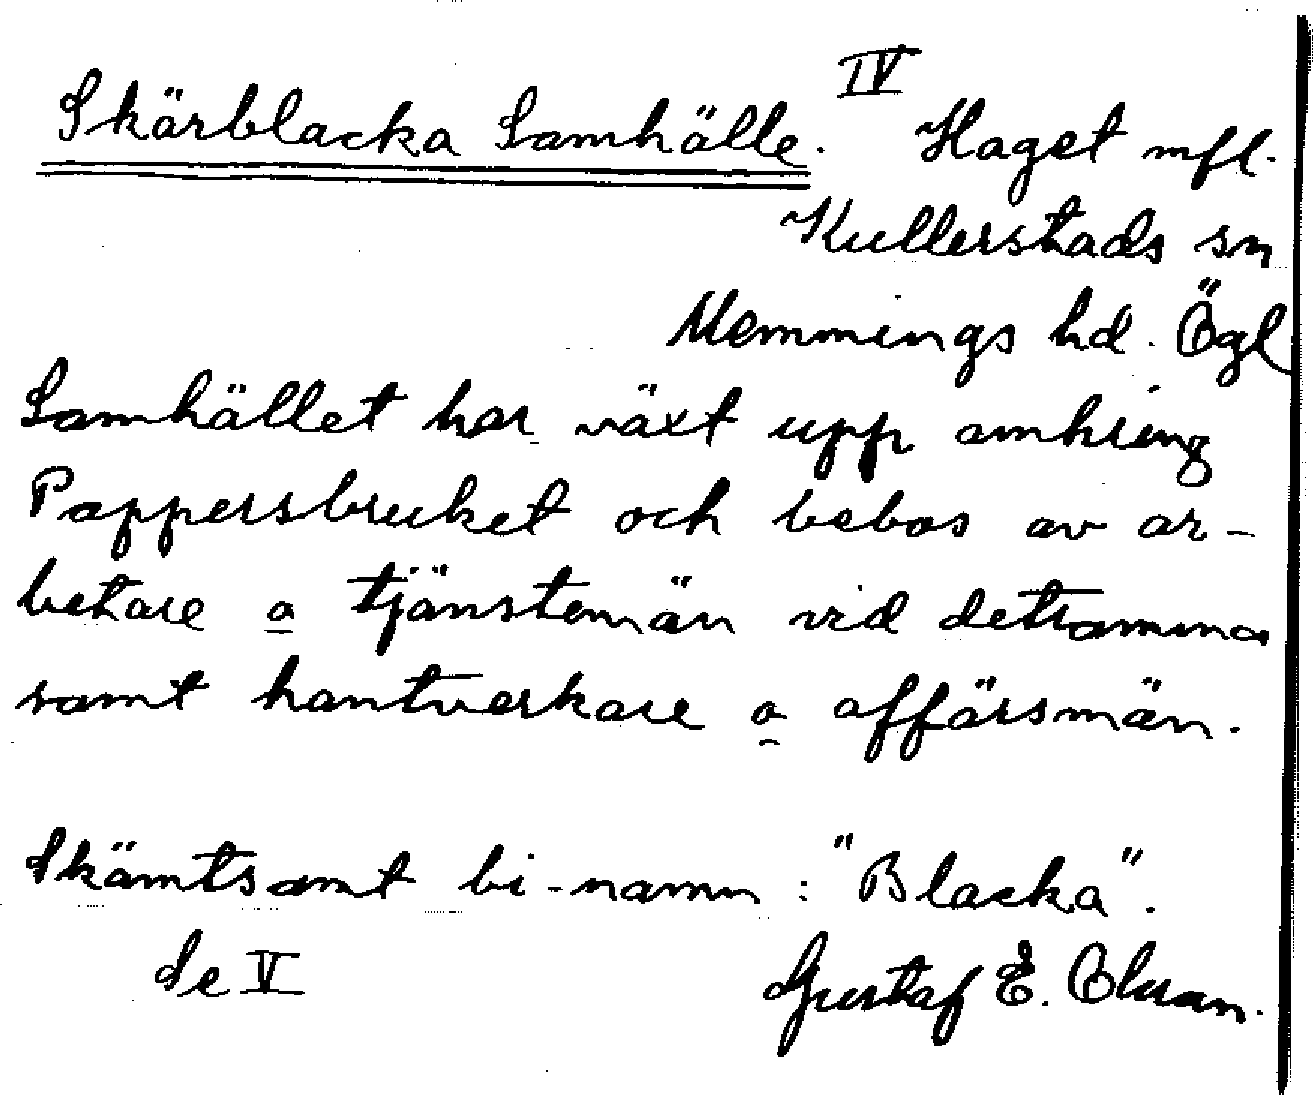 IV
Skärblacka Samhälle. Haget mfl.
Kullerstads sn
Memmings hd. Ögl
Samhället har växt upp omkring
Pappersbruket och bebos av ar-
betare o tjänstemän vid detsamma
samt hantverkare o affärsmän.
Skämtsamt bi-namn: "Blacka".
Se V Gustaf E. Olsson.